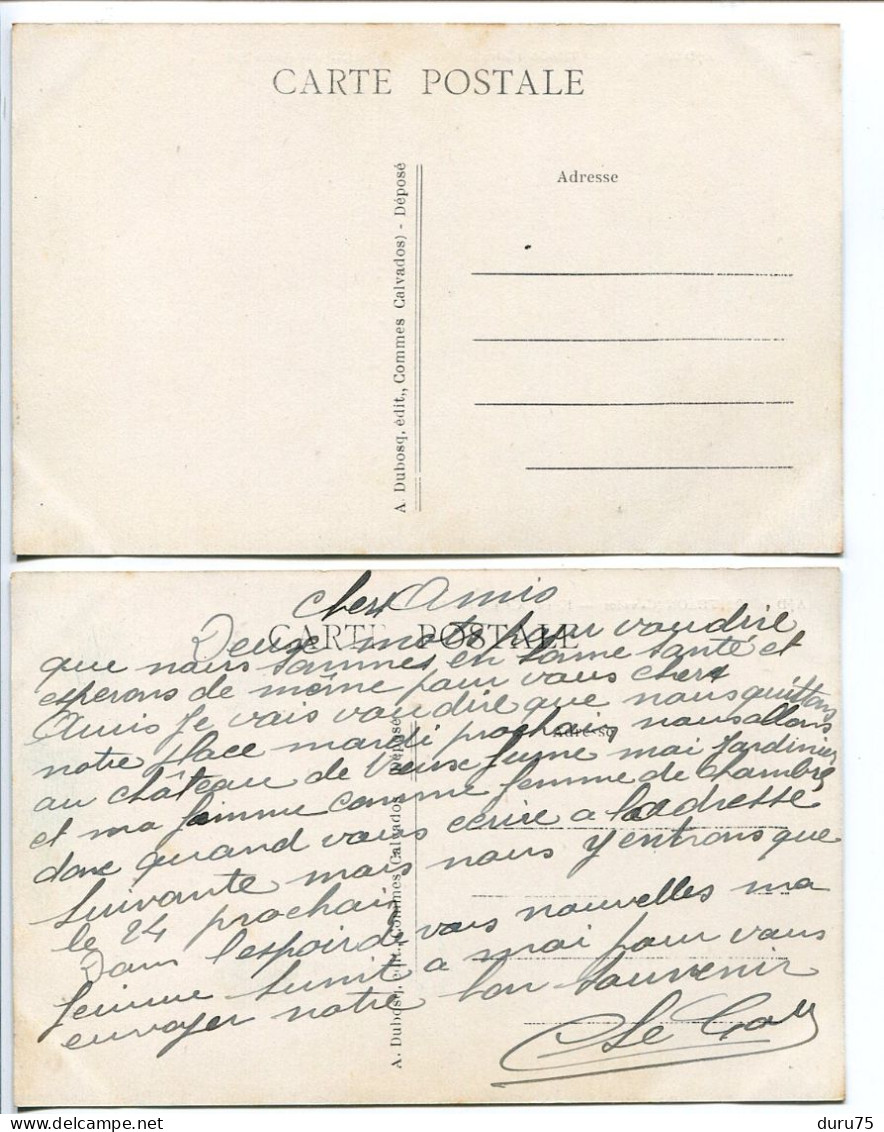 CARTE POSTALE
Adresse
A. Dubosq, édit., Commes Calvados) - Déposé
Chers Amis
CARTE POSTALE
Deux mots pour voudire
que nous sommes en bonne santé et
esperons de même pour vous chers
Amis Je vais voudire que nous quittons
notre place mardi prochain, nous allons
Adresse
au château de mai Jardinier
et ma femme comme femme de chambre
donc quand vous écrire a l'adresse
suivante mais nous y entrons que
le 24 prochain
Dans l'espoir de vous nouvelles ma
femme sunit a moi pour vous
envoyer notre bon souvenir
Le Goll
A. Dubosq, édit., Commes Calvados) - Déposé
duru75